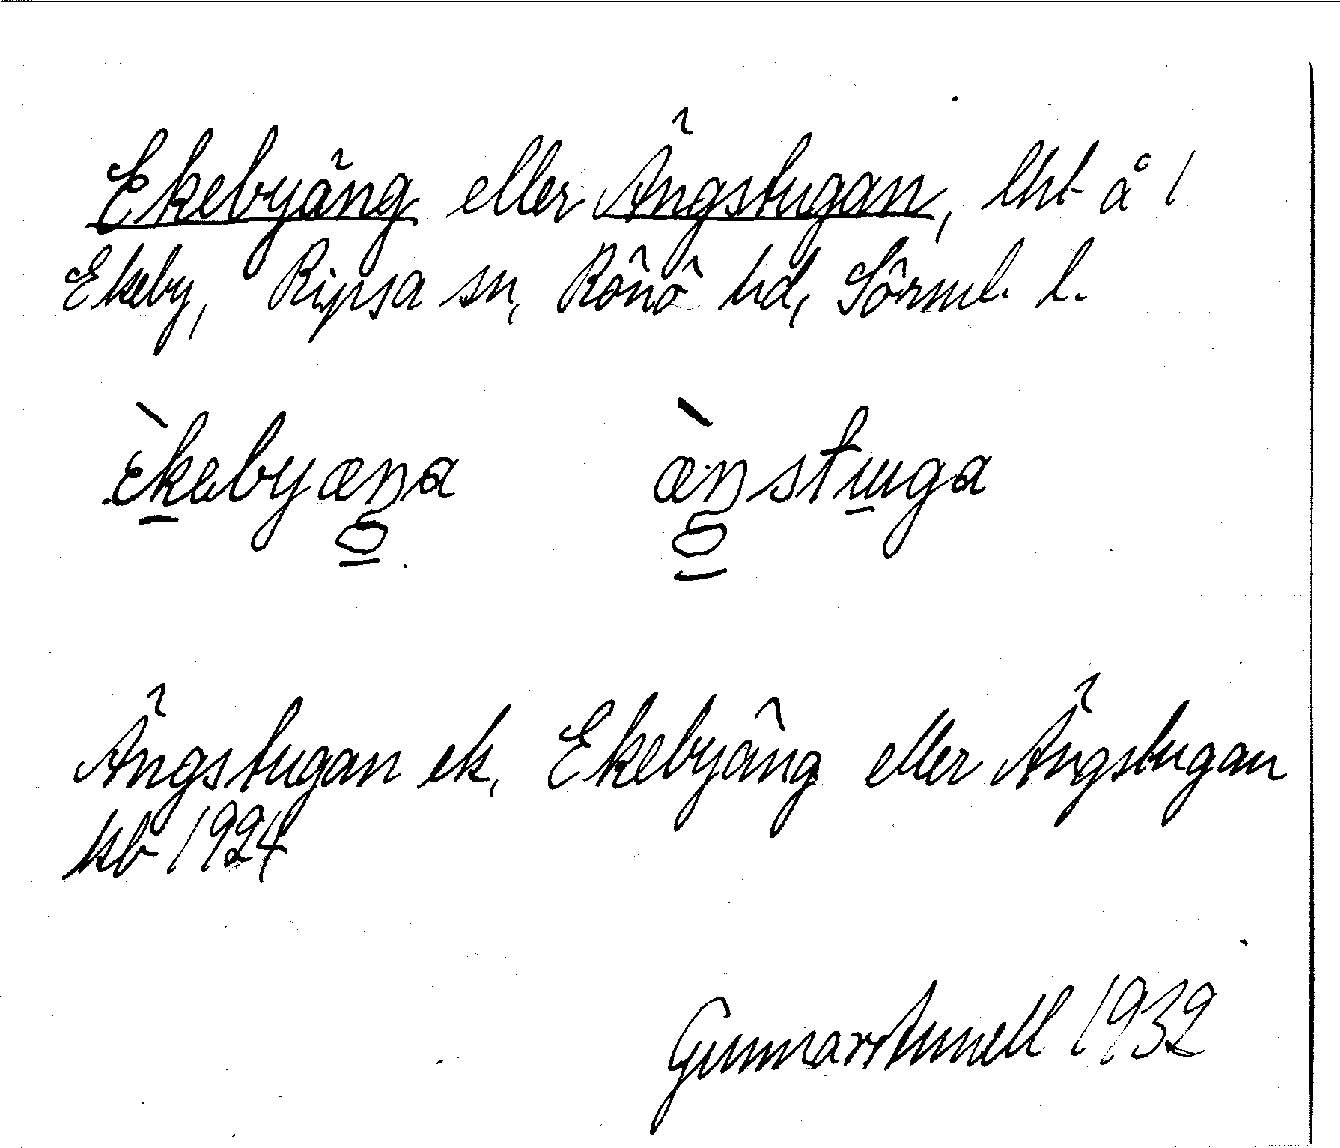 Ekebyäng eller Ängstugan, lht å /
Ekeby, Ripsa sn, Rönö hd, Sörml. l.
èkebyæŋa æ̀ŋstuga
Ängstugan ek. Ekebyäng eller Ängstugan
kb 1924
Gunnar Annell 1932